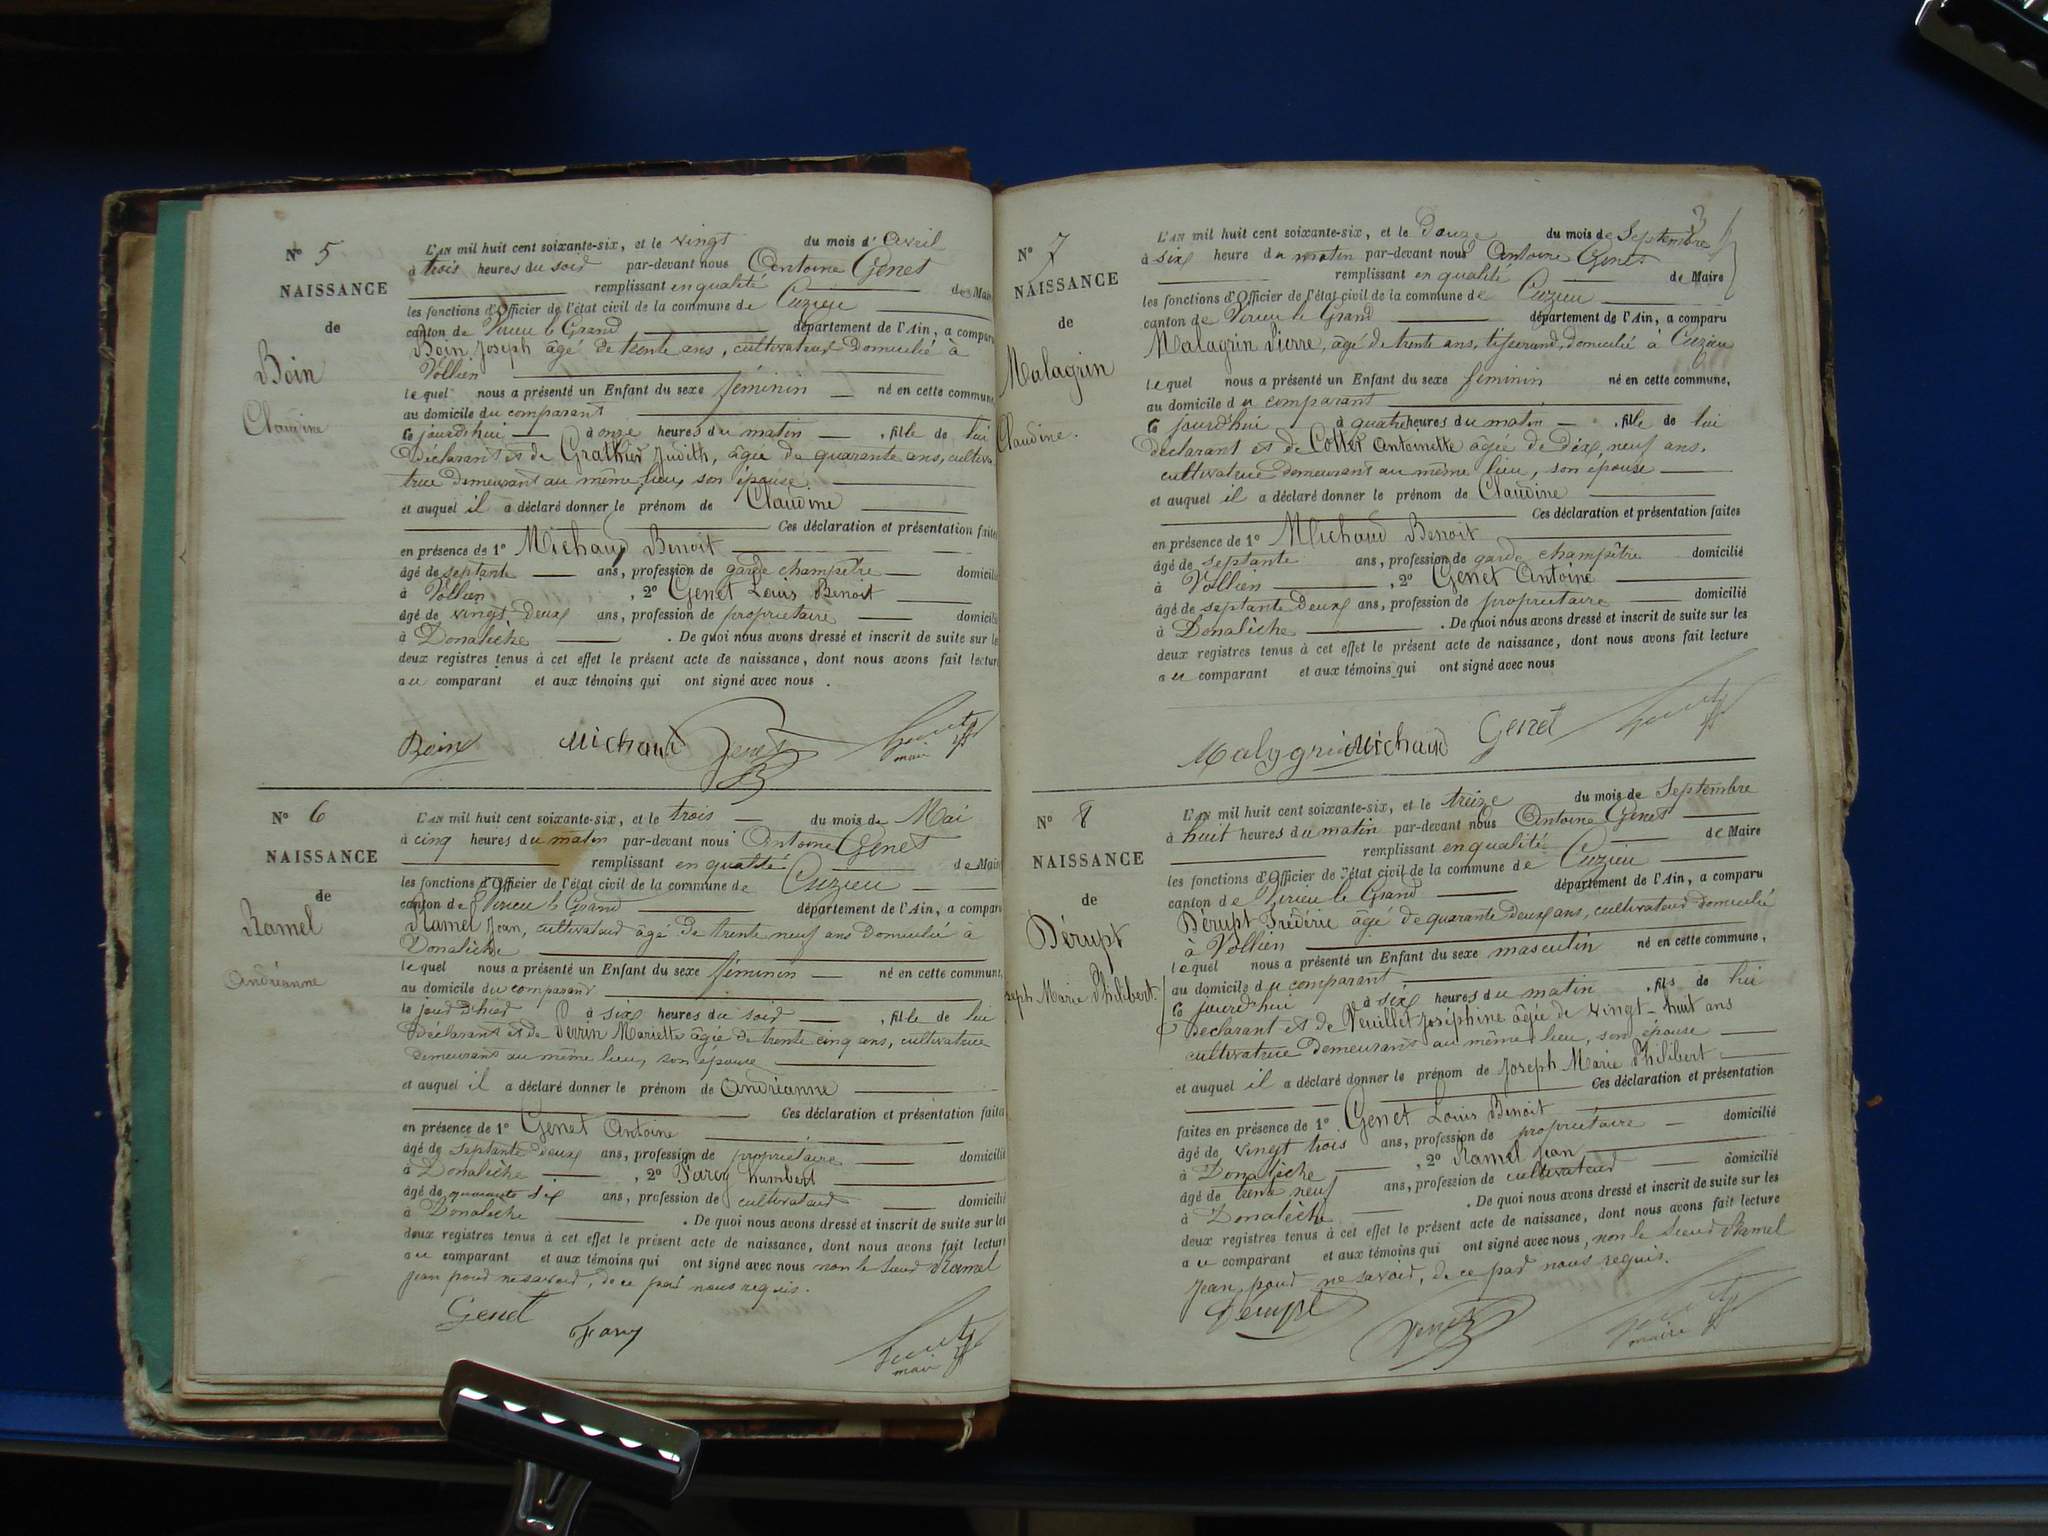 N° 5
NAISSANCE
de
Boin
Claudine
L'AN mil huit cent soixante-six, et le vingt du mois d'avril
à trois heures du soir par-devant nous Antoine Genet
remplissant en qualité de Maire
les fonctions d'Officier de l'état civil de la commune de Cuzieu
canton de Virieu le Grand département de l'Ain, a comparu
Boin Joseph âgé de trente ans, cultivateur domicilié à
Vollien
lequel nous a présenté un Enfant du sexe féminin né en cette commune,
au domicile du comparant
Ce jourd'hui à onze heures du matin, fille de lui
déclarant et de Grathier Judith, âgée de quarante ans, cultiva
trice demeurant au même lieu, son épouse
et auquel il a déclaré donner le prénom de Claudine
Ces déclaration et présentation faites
en présence de 1° Michaud Benoit
âgé de septante ans, profession de garde champêtre domicilié
à Vollien, 2° Genet Louis Benoit
âgé de vingt deux ans, profession de propriétaire domicilié
à Donalèche. De quoi nous avons dressé et inscrit de suite sur les
deux registres tenus à cet effet le présent acte de naissance, dont nous avons fait lecture
au comparant et aux témoins qui ont signé avec nous.
Boin Michaud Genet
maire
N° 6
NAISSANCE
de
Ramel
Andréanne
L'AN mil huit cent soixante-six, et le trois du mois de Mai
à cinq heures du matin par-devant nous Antoine Genet
remplissant en qualité de Maire
les fonctions d'Officier de l'état civil de la commune de Cuzieu
canton de Virieu le Grand département de l'Ain, a comparu
Ramel Jean, cultivateur âgé de trente neuf ans domicilié à
Donalèche
lequel nous a présenté un Enfant du sexe féminin né en cette commune,
au domicile du comparant
le jour d'hier à six heures du soir, fille de lui
déclarant et de Perrin Mariette âgée de trente cinq ans, cultivatrice
demeurant au même lieu, son épouse
et auquel il a déclaré donner le prénom de Andréanne
Ces déclaration et présentation faites
en présence de 1° Genet Antoine
âgé de septante deux ans, profession de propriétaire domicilié
à Donalèche, 2° Parvy humbert
âgé de quarante six ans, profession de cultivateur domicilié
à Donalèche. De quoi nous avons dressé et inscrit de suite sur les
deux registres tenus à cet effet le présent acte de naissance, dont nous avons fait lecture
au comparant et aux témoins qui ont signé avec nous non le sieur Ramel
Jean pour ne savoir, de ce par nous requis.
Genet
maire
3
N° 7
NAISSANCE
de
Malagrin
Claudine.
L'AN mil huit cent soixante-six, et le douze du mois de Septembre
à six heure du matin par-devant nous Antoine Genet
remplissant en qualité de Maire
les fonctions d'Officier de l'état civil de la commune de Cuzieu
canton de Virieu le Grand département de l'Ain, a comparu
Malagrin Pierre, âgé de trente ans, tisserand, domicilié à Cuzieu
lequel nous a présenté un Enfant du sexe féminin né en cette commune,
au domicile du comparant
Ce jourd'hui à quatre heures du matin, fille de lui
déclarant et de Cottet Antoinette âgée de dix neuf ans,
cultivatrice demeurant au même lieu, son épouse
et auquel il a déclaré donner le prénom de Claudine
Ces déclaration et présentation faites
en présence de 1° Michaud Benoit
âgé de septante ans, profession de garde champêtre domicilié
à Vollien, 2° Genet Antoine
âgé de septante deux ans, profession de propriétaire domicilié
à Donalèche. De quoi nous avons dressé et inscrit de suite sur les
deux registres tenus à cet effet le présent acte de naissance, dont nous avons fait lecture
au comparant et aux témoins qui ont signé avec nous
Malagrin Michaud Genet
N° 8
NAISSANCE
de
Dérupt
seph Marie Philibert.
L'AN mil huit cent soixante-six, et le treize du mois de Septembre
à huit heures du matin par-devant nous Antoine Genet
remplissant en qualité de Maire
les fonctions d'Officier de l'état civil de la commune de Cuzieu
canton de Virieu le Grand département de l'Ain, a comparu
Dérupt Frédéric âgé de quarante deux ans, cultivateur domicilié
à Vollien
lequel nous a présenté un Enfant du sexe masculin né en cette commune,
au domicile du comparant
Ce jourd'hui à six heures du matin, fils de lui
déclarant et de Veuillet Joséphine âgée de vingt-huit ans
cultivatrice demeurant au même lieu, son épouse
et auquel il a déclaré donner le prénom de Joseph Marie Philibert
Ces déclaration et présentation
faites en présence de 1° Genet Louis Benoit
âgé de vingt trois ans, profession de propriétaire domicilié
à Donalèche, 2° Ramel Jean
âgé de trente neuf ans, profession de cultivateur domicilié
à Donalèche. De quoi nous avons dressé et inscrit de suite sur les
deux registres tenus à cet effet le présent acte de naissance, dont nous avons fait lecture
au comparant et aux témoins qui ont signé avec nous, non le sieur Ramel
Jean, pour ne savoir, de ce par nous requis.
Dérupt Genet
maire